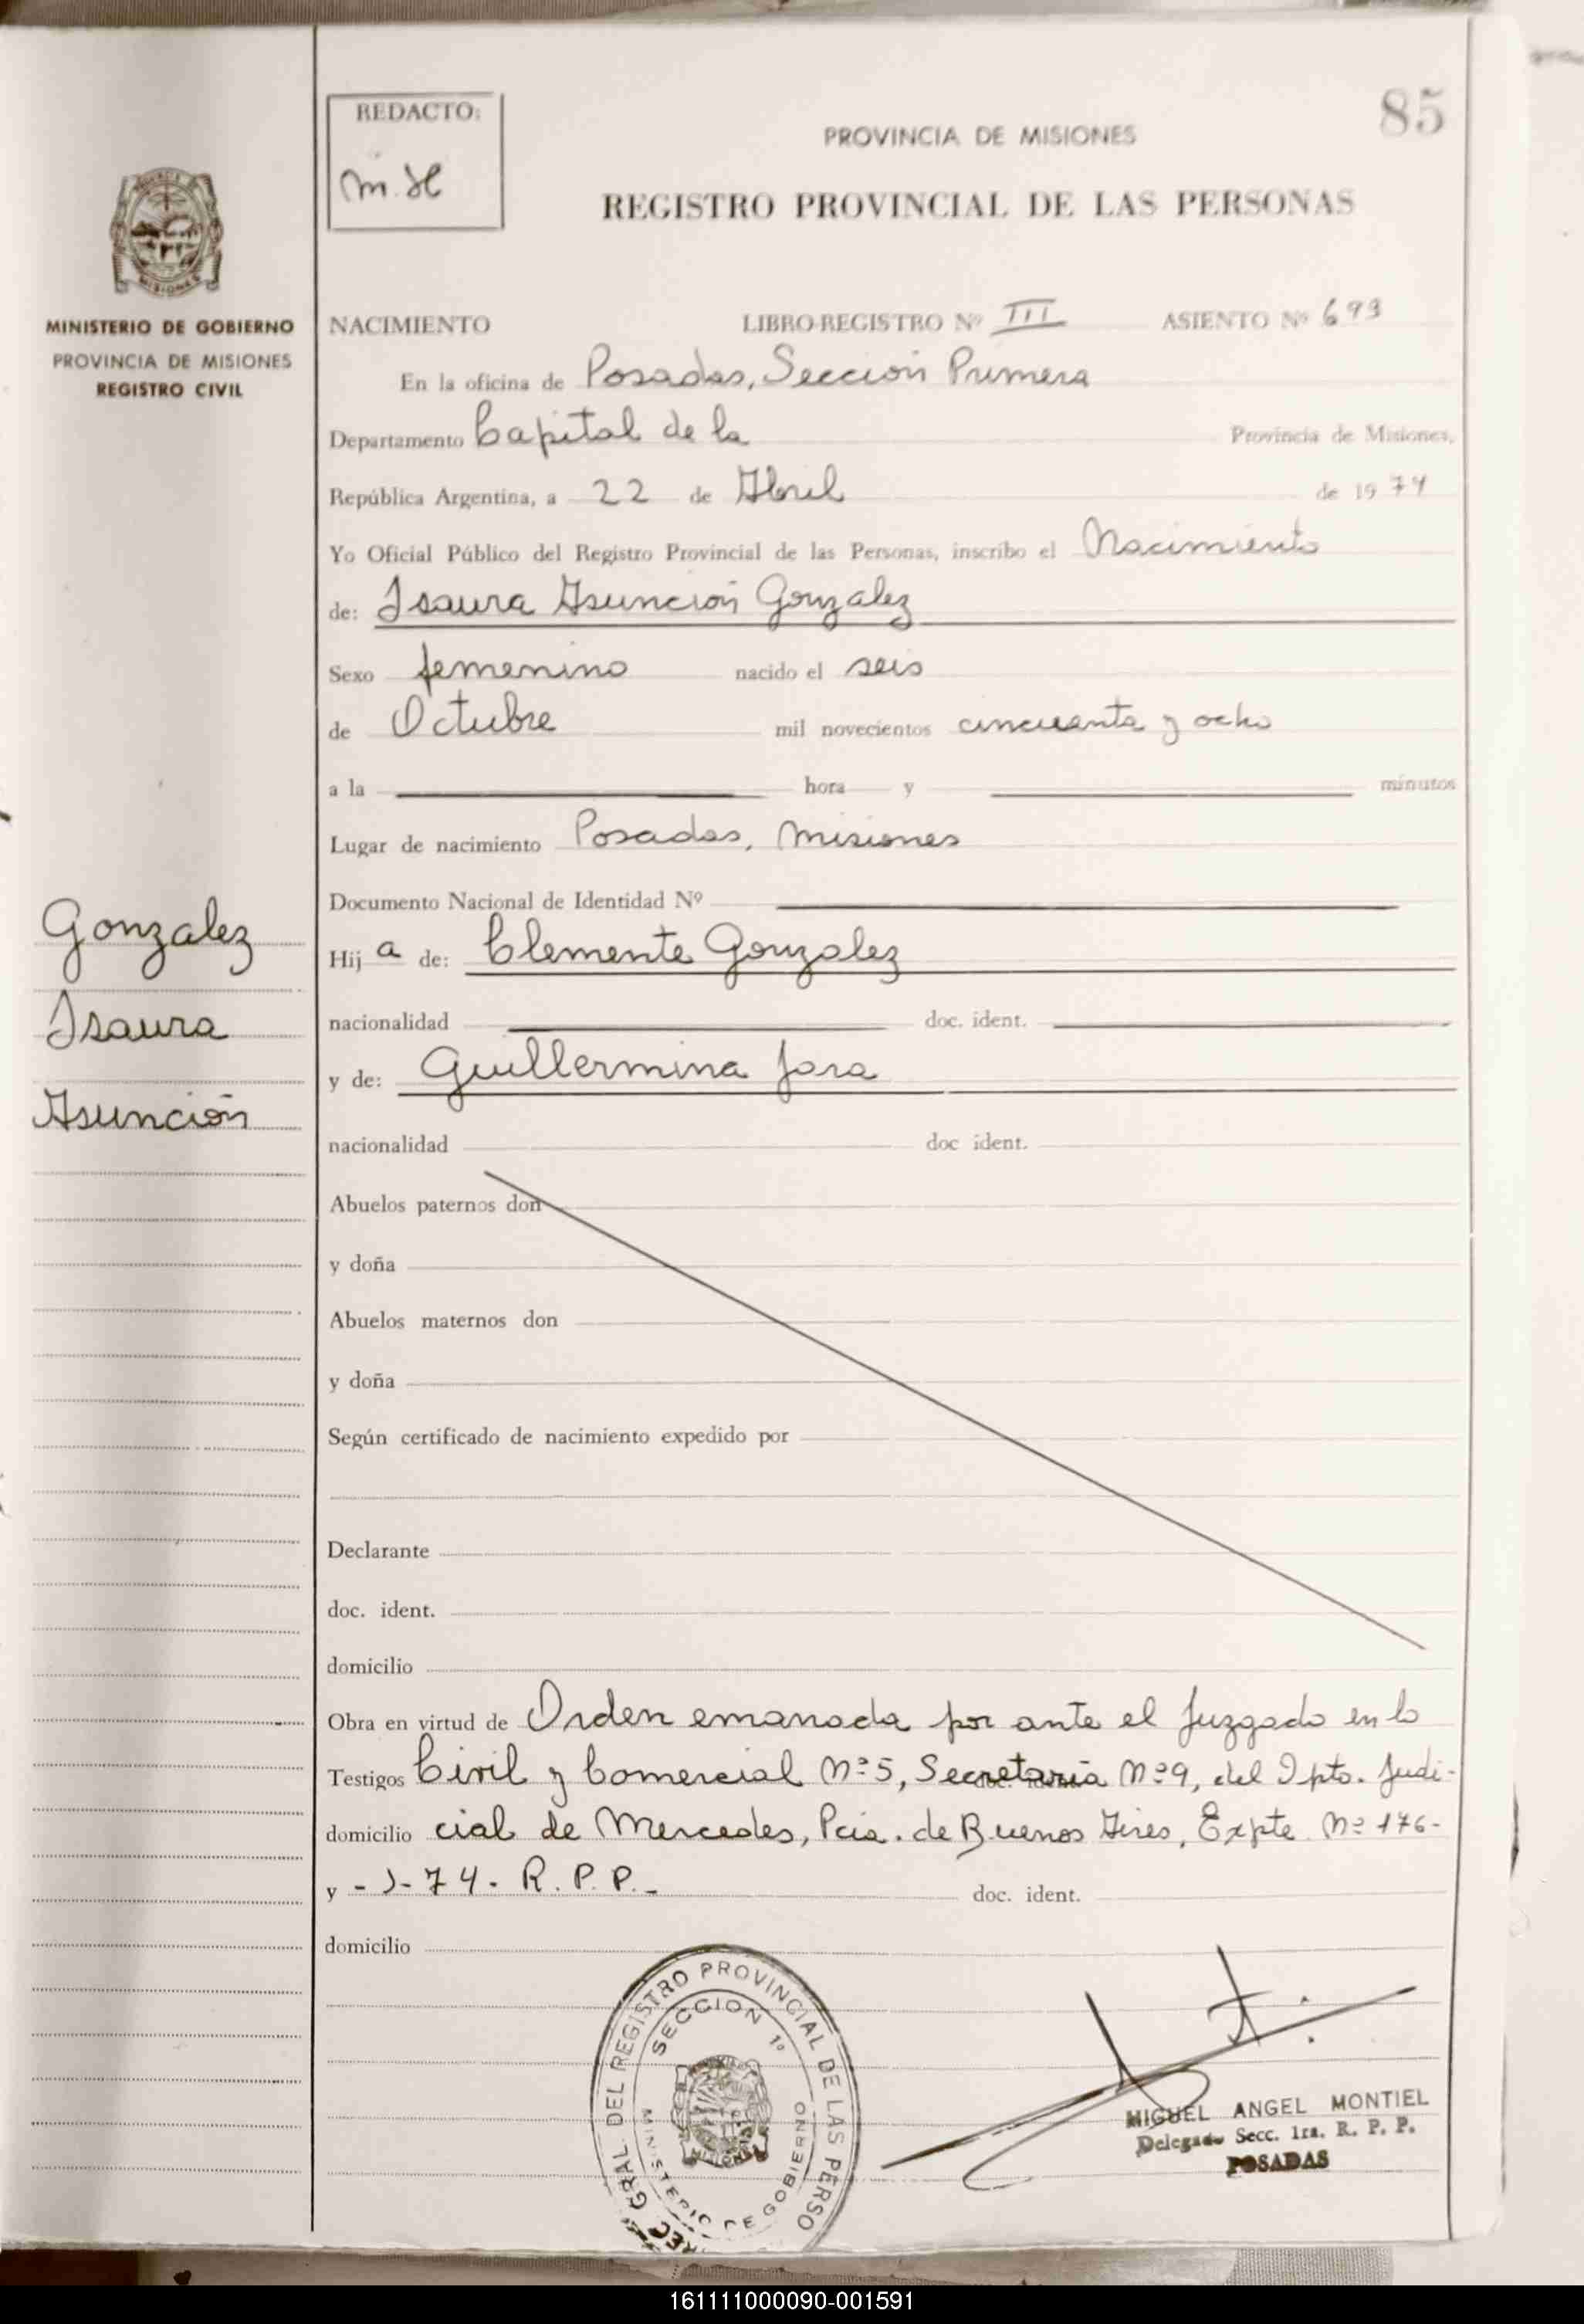 85
REDACTO:
m. H
PROVINCIA DE MISIONES
REGISTRO PROVINCIAL DE LAS PERSONAS
MISIONES
MINISTERIO DE GOBIERNO
PROVINCIA DE MISIONES
REGISTRO CIVIL
NACIMIENTO LIBRO-REGISTRO Nº III ASIENTO Nº 693
En la oficina de Posadas, Sección Primera
Departamento Capital de la Provincia de Misiones,
República Argentina, a 22 de Abril de 1974
Yo Oficial Público del Registro Provincial de las Personas, inscribo el Nacimiento
de: Isaura Asunción Gonzalez
Sexo femenino nacido el seis
de Octubre mil novecientos cincuenta y ocho
a la hora y minutos
Lugar de nacimiento Posadas, Misiones
Documento Nacional de Identidad Nº
Hij a de: Clemente Gonzalez
nacionalidad doc. ident.
y de: Guillermina Jara
nacionalidad doc ident.
Gonzalez
Isaura
Asunción
Abuelos paternos don
y doña
Abuelos maternos don
y doña
Según certificado de nacimiento expedido por
Declarante
doc. ident.
domicilio
Obra en virtud de Orden emanada por ante el Juzgado en lo
Testigos Civil y Comercial Nº 5, Secretaria Nº 9, del Dpto. Judi-
domicilio cial de Mercedes, Pcia. de Buenos Aires, Expte Nº 176-
y - J-74. R.P.P.- doc. ident.
domicilio
GRAL. DEL REGISTRO PROVINCIAL DE LAS PERSO
SECCION 1º
MINISTERIO DE GOBIERNO
MISIONES
MIGUEL ANGEL MONTIEL
Delegado Secc. 1ra. R. P. P.
POSADAS
161111000090-001591